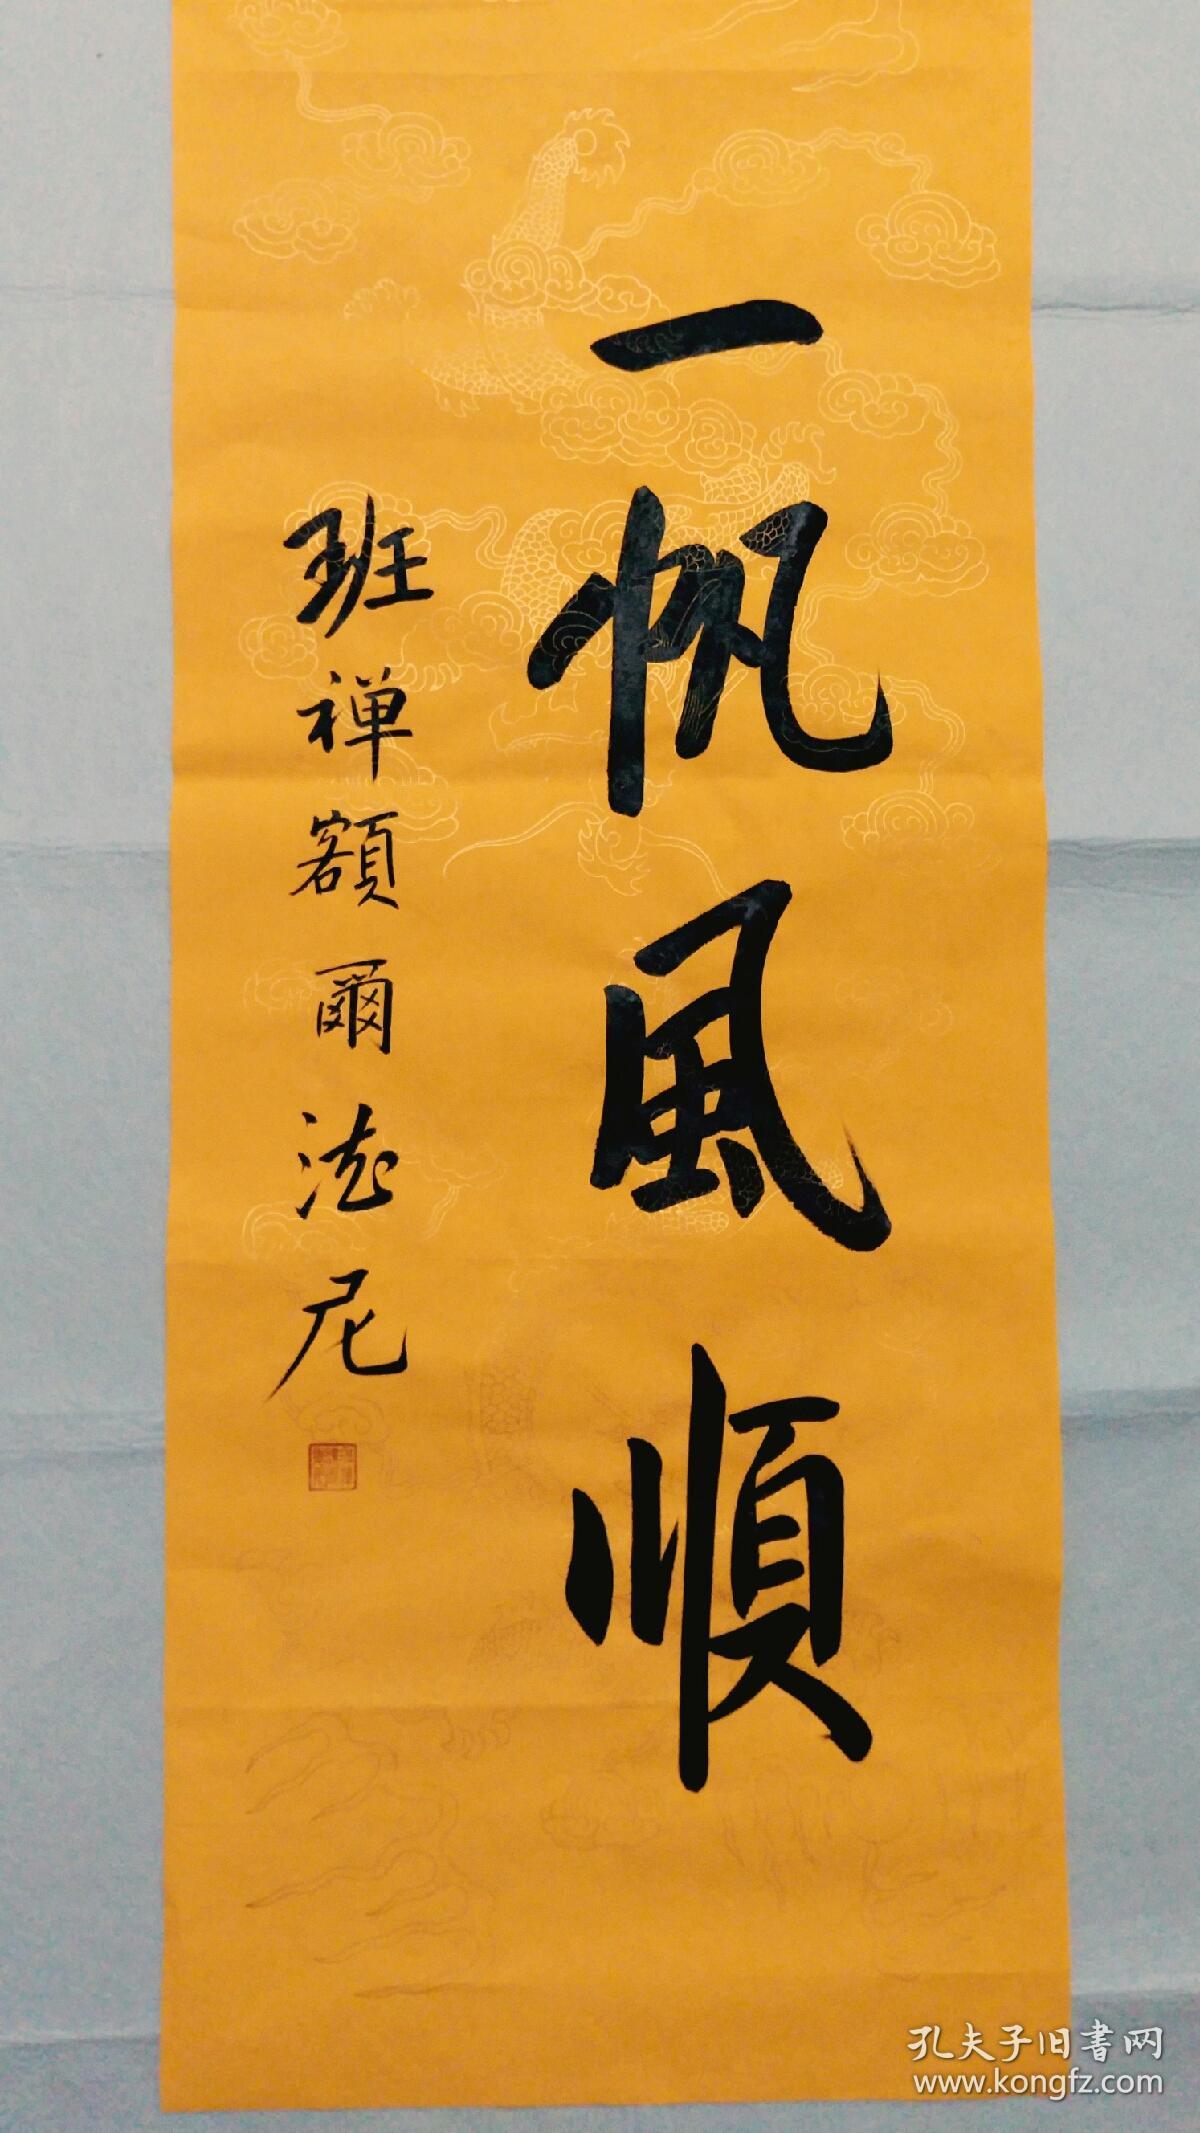 一帆風順
班禅额爾法尼
孔夫子旧書网
www.kongfz.com